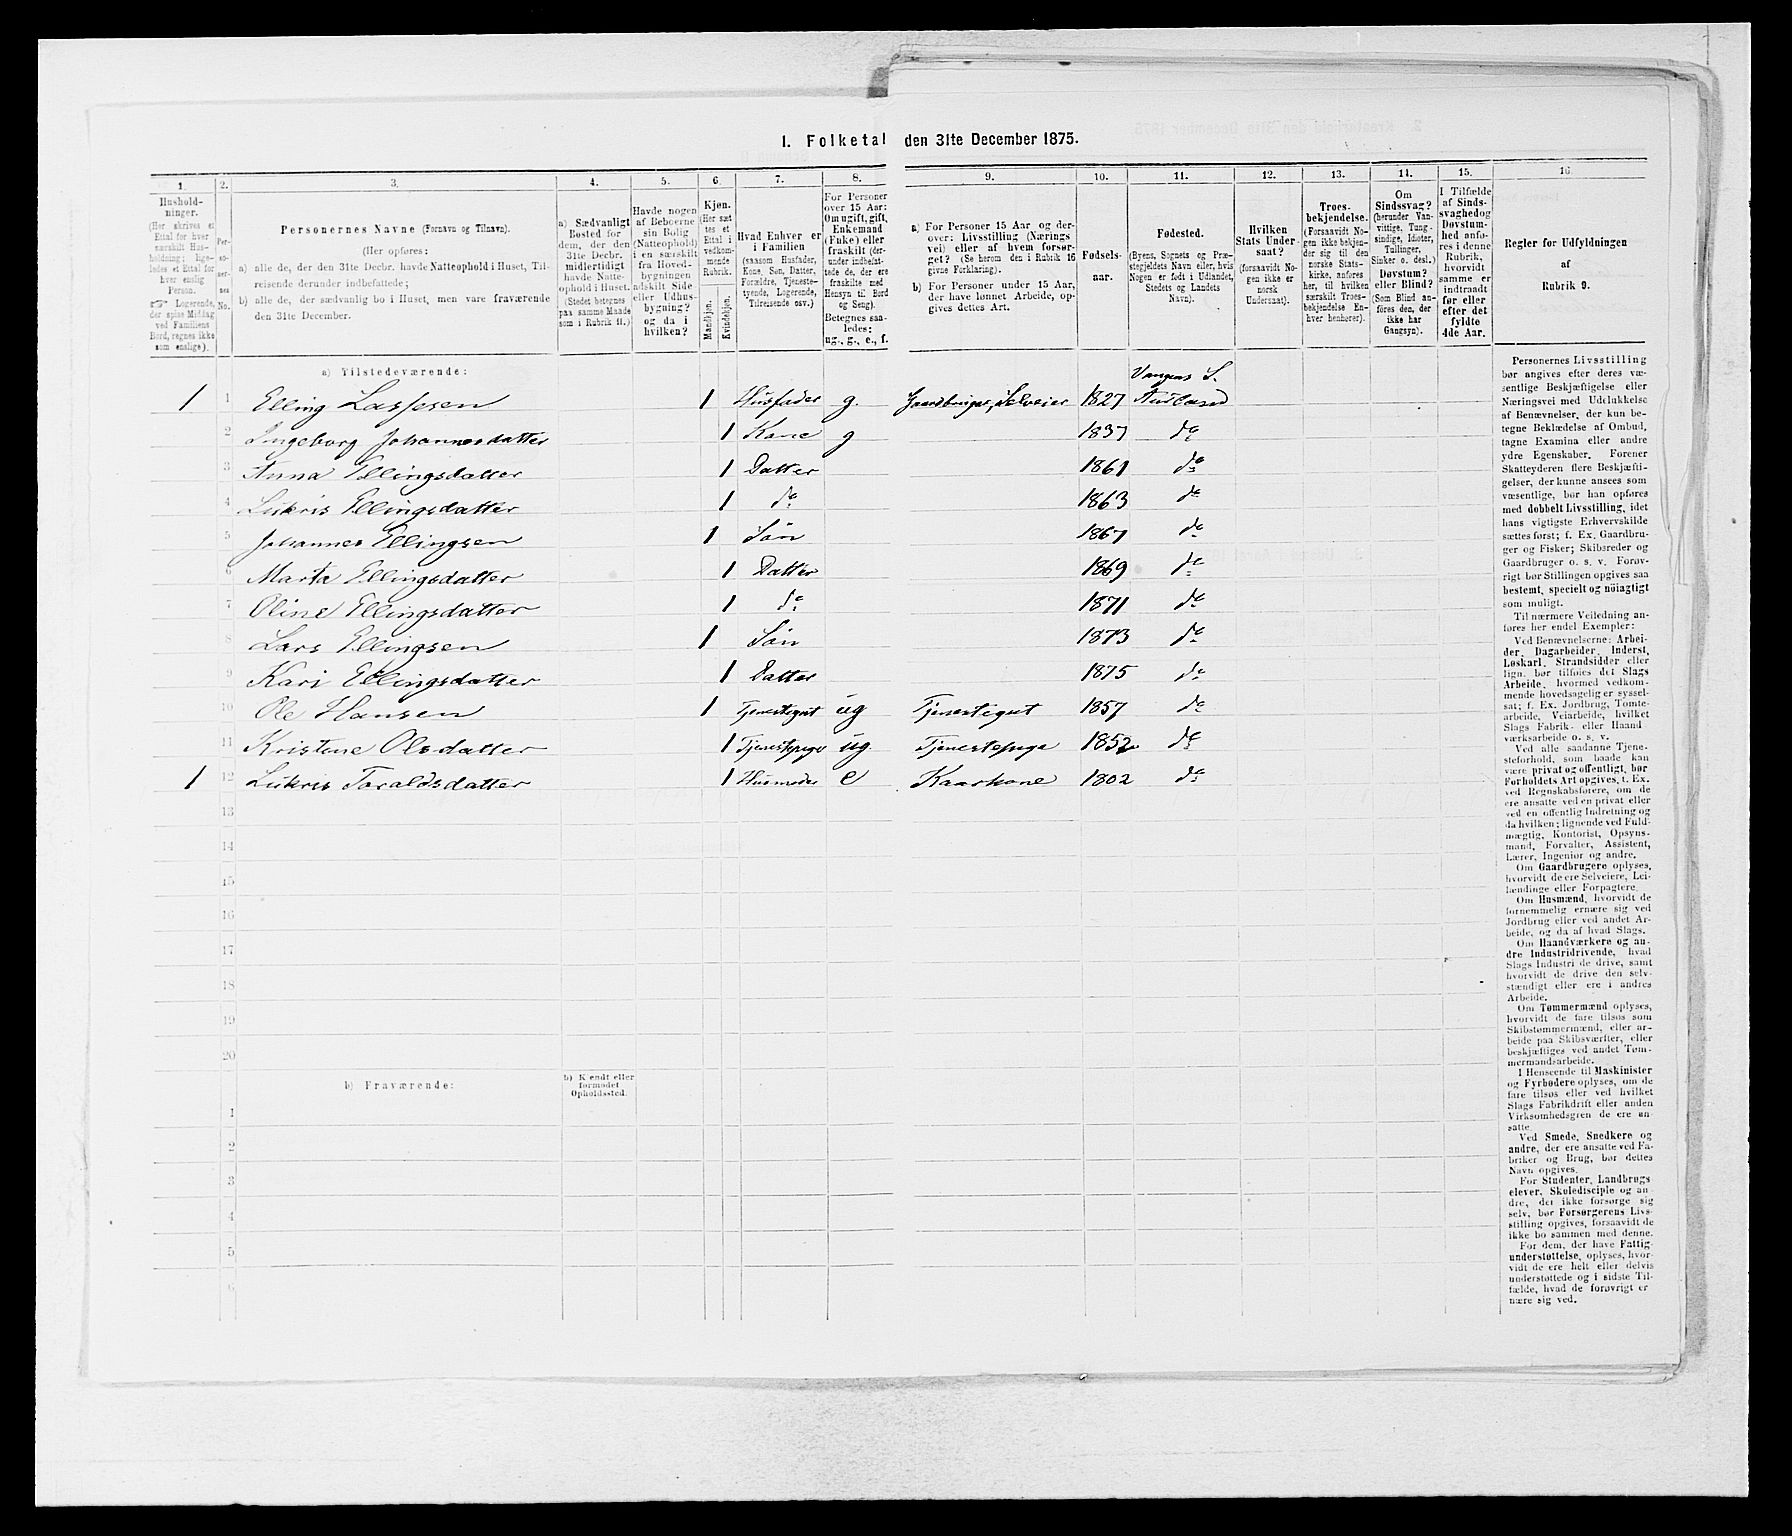 1. Folketal den 31te December 1875.
1. 2. 3. 4. 5. 6. 7. 8. 9. 10. 11. 12. 13. 14. 15. 16.
Hushold-
ninger.
(Her skrives et
Ettal for hver
særskilt Hus-
holdning; lige-
ledes et Ettal for
hver enslig
Person.
Logerende,
der spise Middag
ved Familiens
Bord, regnes ikke
som enslige).
Per-
so-
ner-
nes
No.
Personernes Navne (Fornavn og Tilnavn).
(Her opføres:
a) alle de, der den 31te Decbr. havde Natteophold i Huset, Til-
reisende derunder indbefattede;
b) alle de, der sædvanlig bo i Huset, men vare fraværende
den 31te December.
a) Sædvanligt
Bosted for
dem, der den
31te Decbr.
midlertidigt
havde Natte-
ophold i Huset.
(Stedet betegnes
paa samme Maade
som i Rubrik 11.)
Havde nogen
af Beboerne
sin Bolig
(Natteophold)
i en særskilt
fra Hoved-
bygningen
adskilt Side
eller Udhus-
bygning?
og da i
hvilken?
Kjøn.
(Her sæt
tes et
Ettal i
vedkom-
mende
Rubrik.
Mandkjøn.
Kvindekjøn.
Hvad Enhver er
i Familien
(saasom Husfader,
Kone, Søn, Datter,
Forældre, Tjeneste-
tyende, Logerende,
Tilreisende osv.)
For Personer
over 15 Aar:
Om ugift, gift,
Enkemand
(Enke) eller
fraskilt (der-
under indbefat-
tede de, der ere
fraskilte med
Hensyn til Bord
og Seng).
Betegnes saa-
ledes:
ug., g., e., f.
a) For Personer 15 Aar og der-
over: Livsstilling (Nærings
vei) eller af hvem forsør-
get? (Se herom den i Rubrik 16
givne Forklaring).
b) For Personer under 15 Aar,
der have lønnet Arbeide, op-
gives dettes Art.
Fødsels-
aar.
Fødested.
(Byens, Sognets og Præ-
stegjeldets Navn eller, hvis
Nogen er født i Udlandet,
Stedets og Landets
Navn).
Hvilken
Stats Under-
saat?
(forsaavidt No-
gen ikke er
norsk
Undersaat).
Troes-
bekjendelse.
(Forsaavidt No-
gen ikke bekjen-
der sig til den
norske Stats-
kirke, anføres
her, til hvilken
særskilt Troes-
bekjendelse En-
hver henhører).
Om
Sindssvag?
(herunder Van-
vittige, Tung-
sindige, Idioter,
Tullinger,
Sinker o. desl.)
Døvstum?
eller Blind?
(Som Blind an-
føres den, der
ikke har
Gangsyn).
I Tilfælde
af Sinds-
svaghed og
Døvstum-
hed anfø-
res i denne
Rubrik,
hvorvidt
samme er
indtraadt
før eller
efter det
fyldte
4de Aar.
Regler for Udfyldningen
af
Rubrik 9.
a) Tilstedeværende:
Vangens S.
1 1 Elling Lassesen 1 Husfader g. Gaardbruger, Selveier 1827 Aurland
2 Ingeborg Johannesdatter 1 Kone g 1837 do
3 Anna Ellingsdatter 1 Datter 1861 do
4 Lukris Ellingsdatter 1 do 1863 do
5 Johannes Ellingsen 1 Søn 1867 do
6 Marta Ellingsdatter 1 Datter 1869 do
7 Oline Ellingsdatter 1 do 1871 do
8 Lars Ellingsen 1 Søn 1873 do
9 Kari Ellingsdatter 1 Datter 1875 do
10 Ole Hansen 1 Tjenestegut ug Tjenestegut 1857 do
11 Kristene Olsdatter 1 Tjenestepige ug. Tjenestepige 1852 do
1 12 Lukris Taraldsdatter 1 Husmoder e Kaarkone 1802 do
13
14
15
16
17
18
19
20
b) Fraværende:
b) Kendt eller
formodet
Opholdssted.
1
2
3
4
5
6
Personernes Livsstilling
bør angives efter deres væ-
sentlige Beskjæftigelse eller
Næringsvei med Udelukkelse
af Benævnelser, der kun be-
tegne Beklædelse af Ombud,
tagne Examina eller andre
ydre Egenskaber. Forener
Skatteyderen flere Beskjæfti-
gelser, der kunne ansees som
væsentlige, bør han opføres
med dobbelt Livsstilling, idet
hans vigtigste Erhvervskilde
sættes først; f. Ex. Gaardbru-
ger og Fisker; Skibsreder og
Gaardbruger o. s. v. Forøv-
rigt bør Stillingen opgives saa
bestemt, specielt og nöiagtigt
som muligt.
Til nærmere Veiledning an-
føres her endel Exempler:
Ved Benævnelserne: Arbei-
der, Dagarbeider, Inderst,
Løskarl, Strandsidder eller
lign. bør tilføies det Slags
Arbeide, hvormed vedkom-
mende hovedsagelig er syssel-
sat; f. Ex. Jordbrug, Tomte-
arbeide, Veiarbeide, hvilket
Slags Fabrik- eller Haand
værksarbeide o. s. v.
Ved alle saadanne Tjene-
steforhold, som baade kan
være privat og offentligt, bør
Forholdets Art opgives, t. Ex.
ved Regnskabsførere, om de
ere ansatte ved en privat eller
ved en offentlig Indretning og
da hvilken; lignende ved Fuld-
mægtig, Kontorist, Opsyns-
mand, Forvalter, Assistent,
Lærer, Ingeniør og andre.
Om Gaardbrugere oplyses,
hvorvidt de ere Selveiere, Lei-
lændinge eller Forpagtere.
Om Husmænd, hvorvidt de
fornemmelig ernære sig ved
Jordbrug eller ved andet Ar-
beide, og da af hvad Slags.
Om Haandværkere og an-
dre Industridrivende, hvad
Slags Industri de drive, samt
hvorvidt de drive den selv-
stændigt eller ere i andres
Arbeide.
Om Tømmermænd oplyses,
hvorvidt de fare tilsøs som
Skibstømmermænd, eller ar-
beide paa Skibsværfter, eller
beskjæftiges ved andet Tøm-
mermandsarbeide.
I Henseende til Maskinister
og Fyrbødere oplyses, om de
fare tilsøs eller ved hvilket
Slags Fabrikdrift eller anden
Virksomhedsgren de ere an-
satte.
Ved Smede, Snedkere og
andre, der ere ansatte ved Fa-
briker og Brug, bør dettes
Navn opgives.
For Studenter, Landbrugs
elever, Skoledisciple og an-
dre, der ikke forsørge sig
selv, bør Forsørgerens Livs-
stilling opgives, forsaavidt de
ikke bo sammen med denne.
For dem, der have Fattig-
understøttelse, oplyses, hvor-
vidt de ere helt eller delvis
understøttede og i sidste Til-
fælde, hvad de forøvrigt er
nære sig ved.